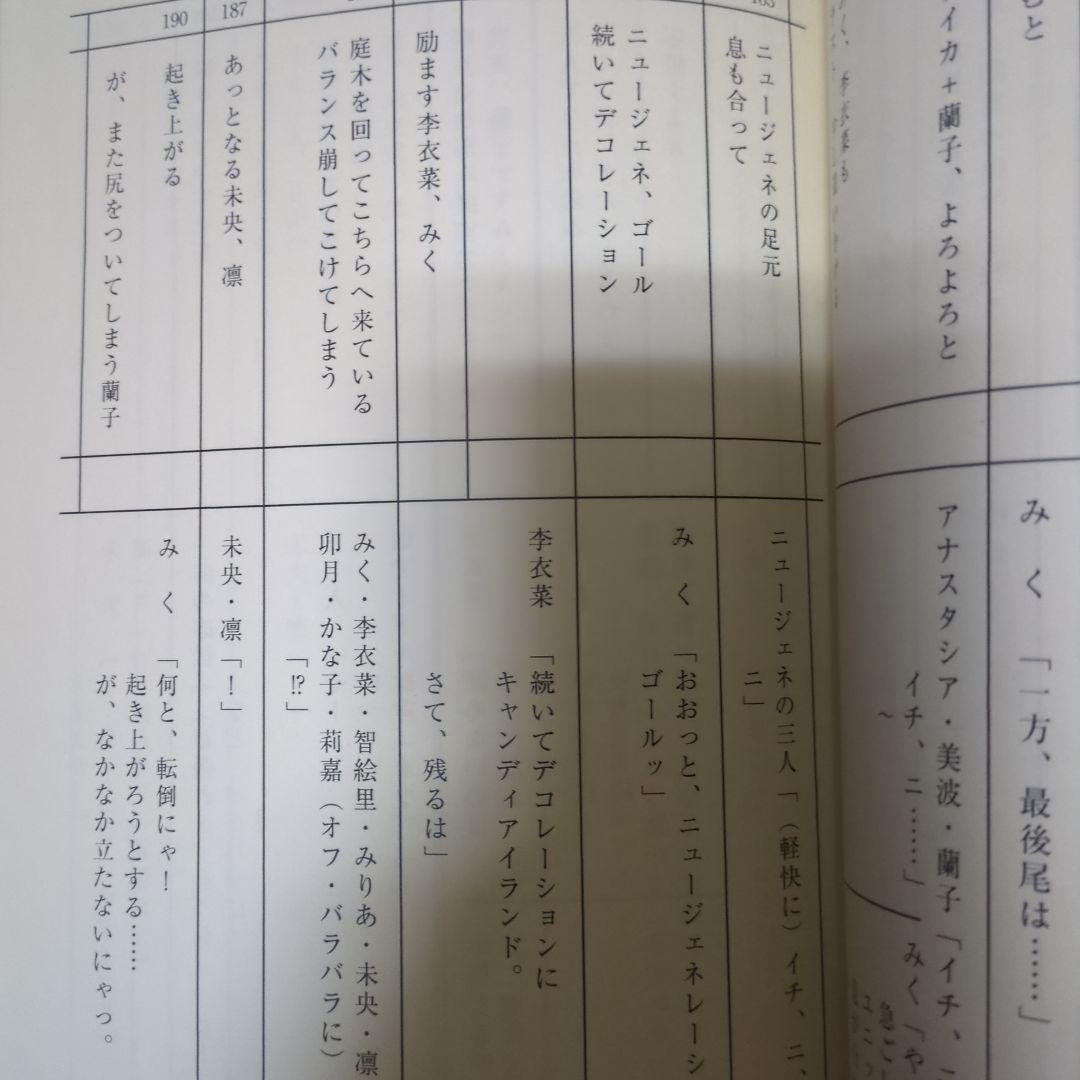 もと
イカ+蘭子、よろよろと
み　く　「一方、最後尾は……」
アナスタシア・美波・蘭子「イチ、
イチ、ニ……」
〜
みく「や
急ご
ニュージェネの足元
息も合って
ニュージェネの三人「（軽快に）イチ、ニ、
ニ」
ニュージェネ、ゴール
続いてデコレーション
み　く　「おおっと、ニュージェネレーシ
ゴールッ」
李衣菜　「続いてデコレーションに
キャンディアイランド。
励ます李衣菜、みく
さて、残るは」
庭木を回ってこちらへ来ている
バランス崩してこけてしまう
みく・李衣菜・智絵里・みりあ・未央・凛
卯月・かな子・莉嘉（オフ・バラバラに）
「!?」
187
あっとなる未央、凛
未央・凛「！」
190
起き上がる
が、また尻をついてしまう蘭子
み　く　「何と、転倒にゃ！
起き上がろうとする……
が、なかなか立たないにゃっ。